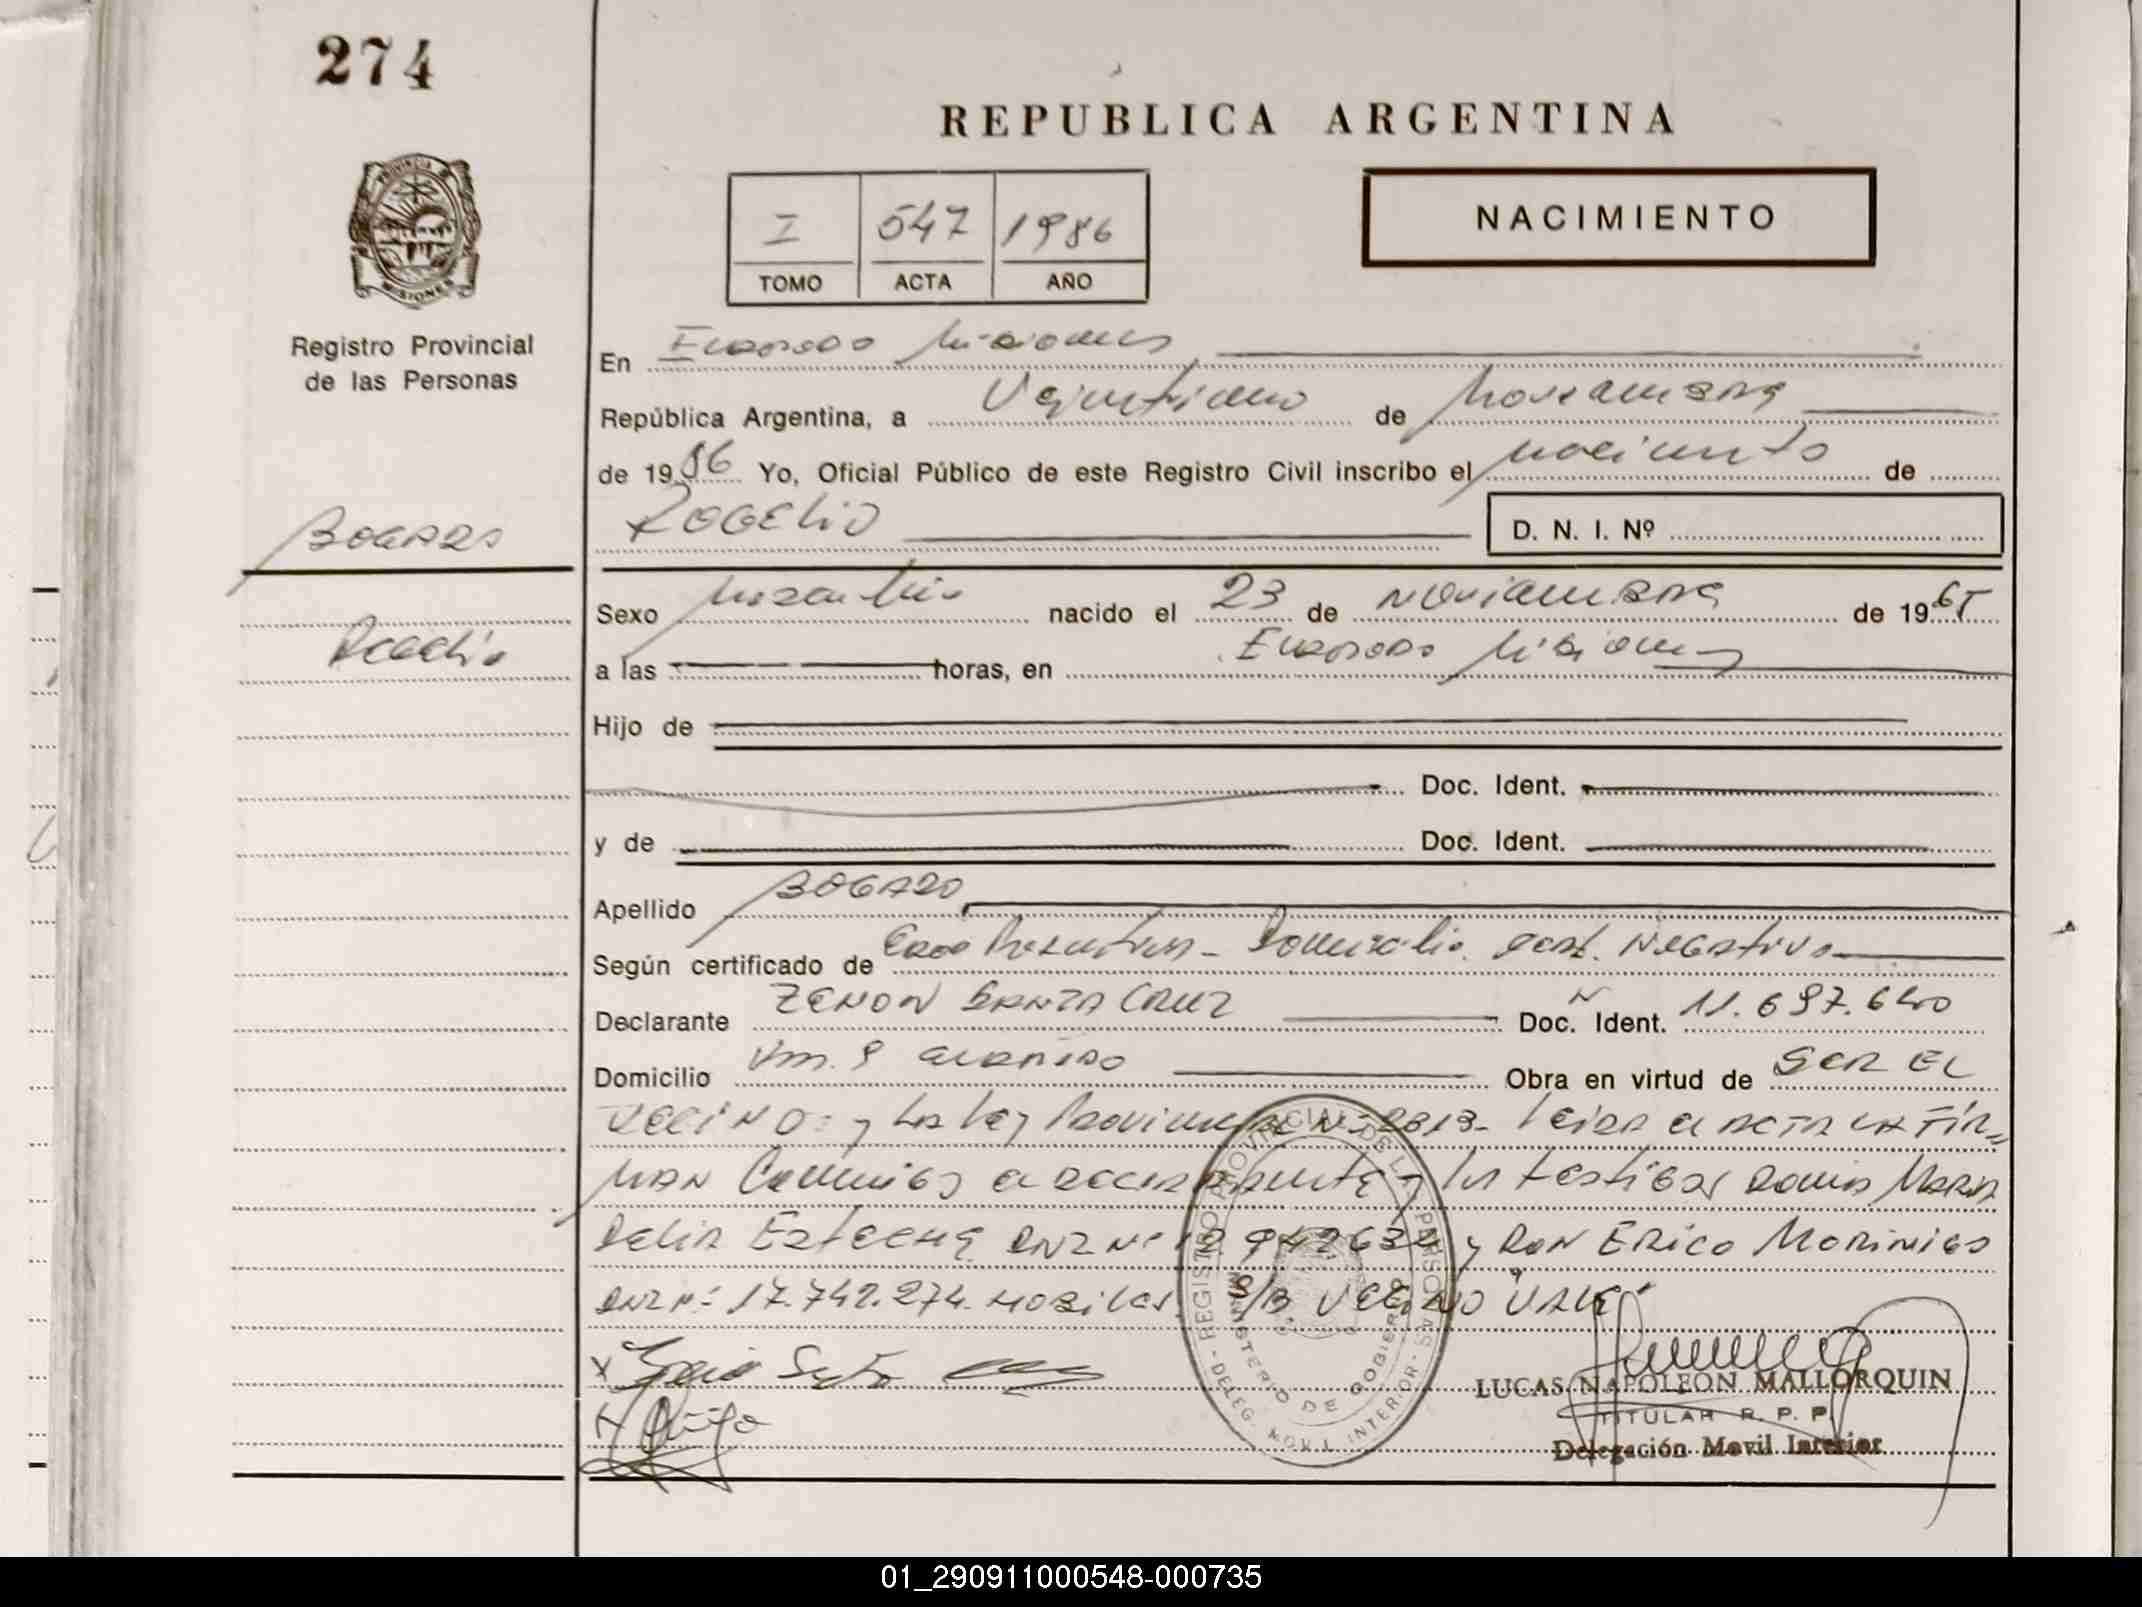 274
REPUBLICA ARGENTINA
I 547 1986
TOMO ACTA AÑO
NACIMIENTO
PROVINCIA DE
MISIONES
Registro Provincial
de las Personas
En Eldorado Misiones
República Argentina, a Veintiuno de Noviembre
de 1986 Yo, Oficial Público de este Registro Civil inscribo el nacimiento de
BOGADO
ROGELIO
D. N. I. Nº
Sexo Masculino nacido el 23 de NOVIEMBRE de 1965
Rogelio
a las horas, en Eldorado Misiones
Hijo de
Doc. Ident.
y de Doc. Ident.
Apellido BOGADO
Según certificado de Edad Presuntiva - Domicilio. Cert. Negativo
Declarante ZENON SANTA CRUZ Doc. Ident. 11.697.640
Domicilio Km. 9 Eldorado Obra en virtud de SER EL
VECINO: y la Ley Provincial Nº 2313- Leida el ACTA LA FIR=
MAN Conmigo el DECLARANTE y los testigos DOÑA MARIA
DELIA Esteche DNI Nº 12 942634 y DON ERICO MORINIGO
DNI Nº 17.742.274. HABILES. S/B VECINO "VALE"
REGISTRO PROVINCIAL DE LAS PERSONAS
MINISTERIO DE GOBIERNO
DELEG. MOVIL INTERIOR
LUCAS NAPOLEON MALLORQUIN
TITULAR R. P. P.
Delegación Movil Interior
01_290911000548-000735